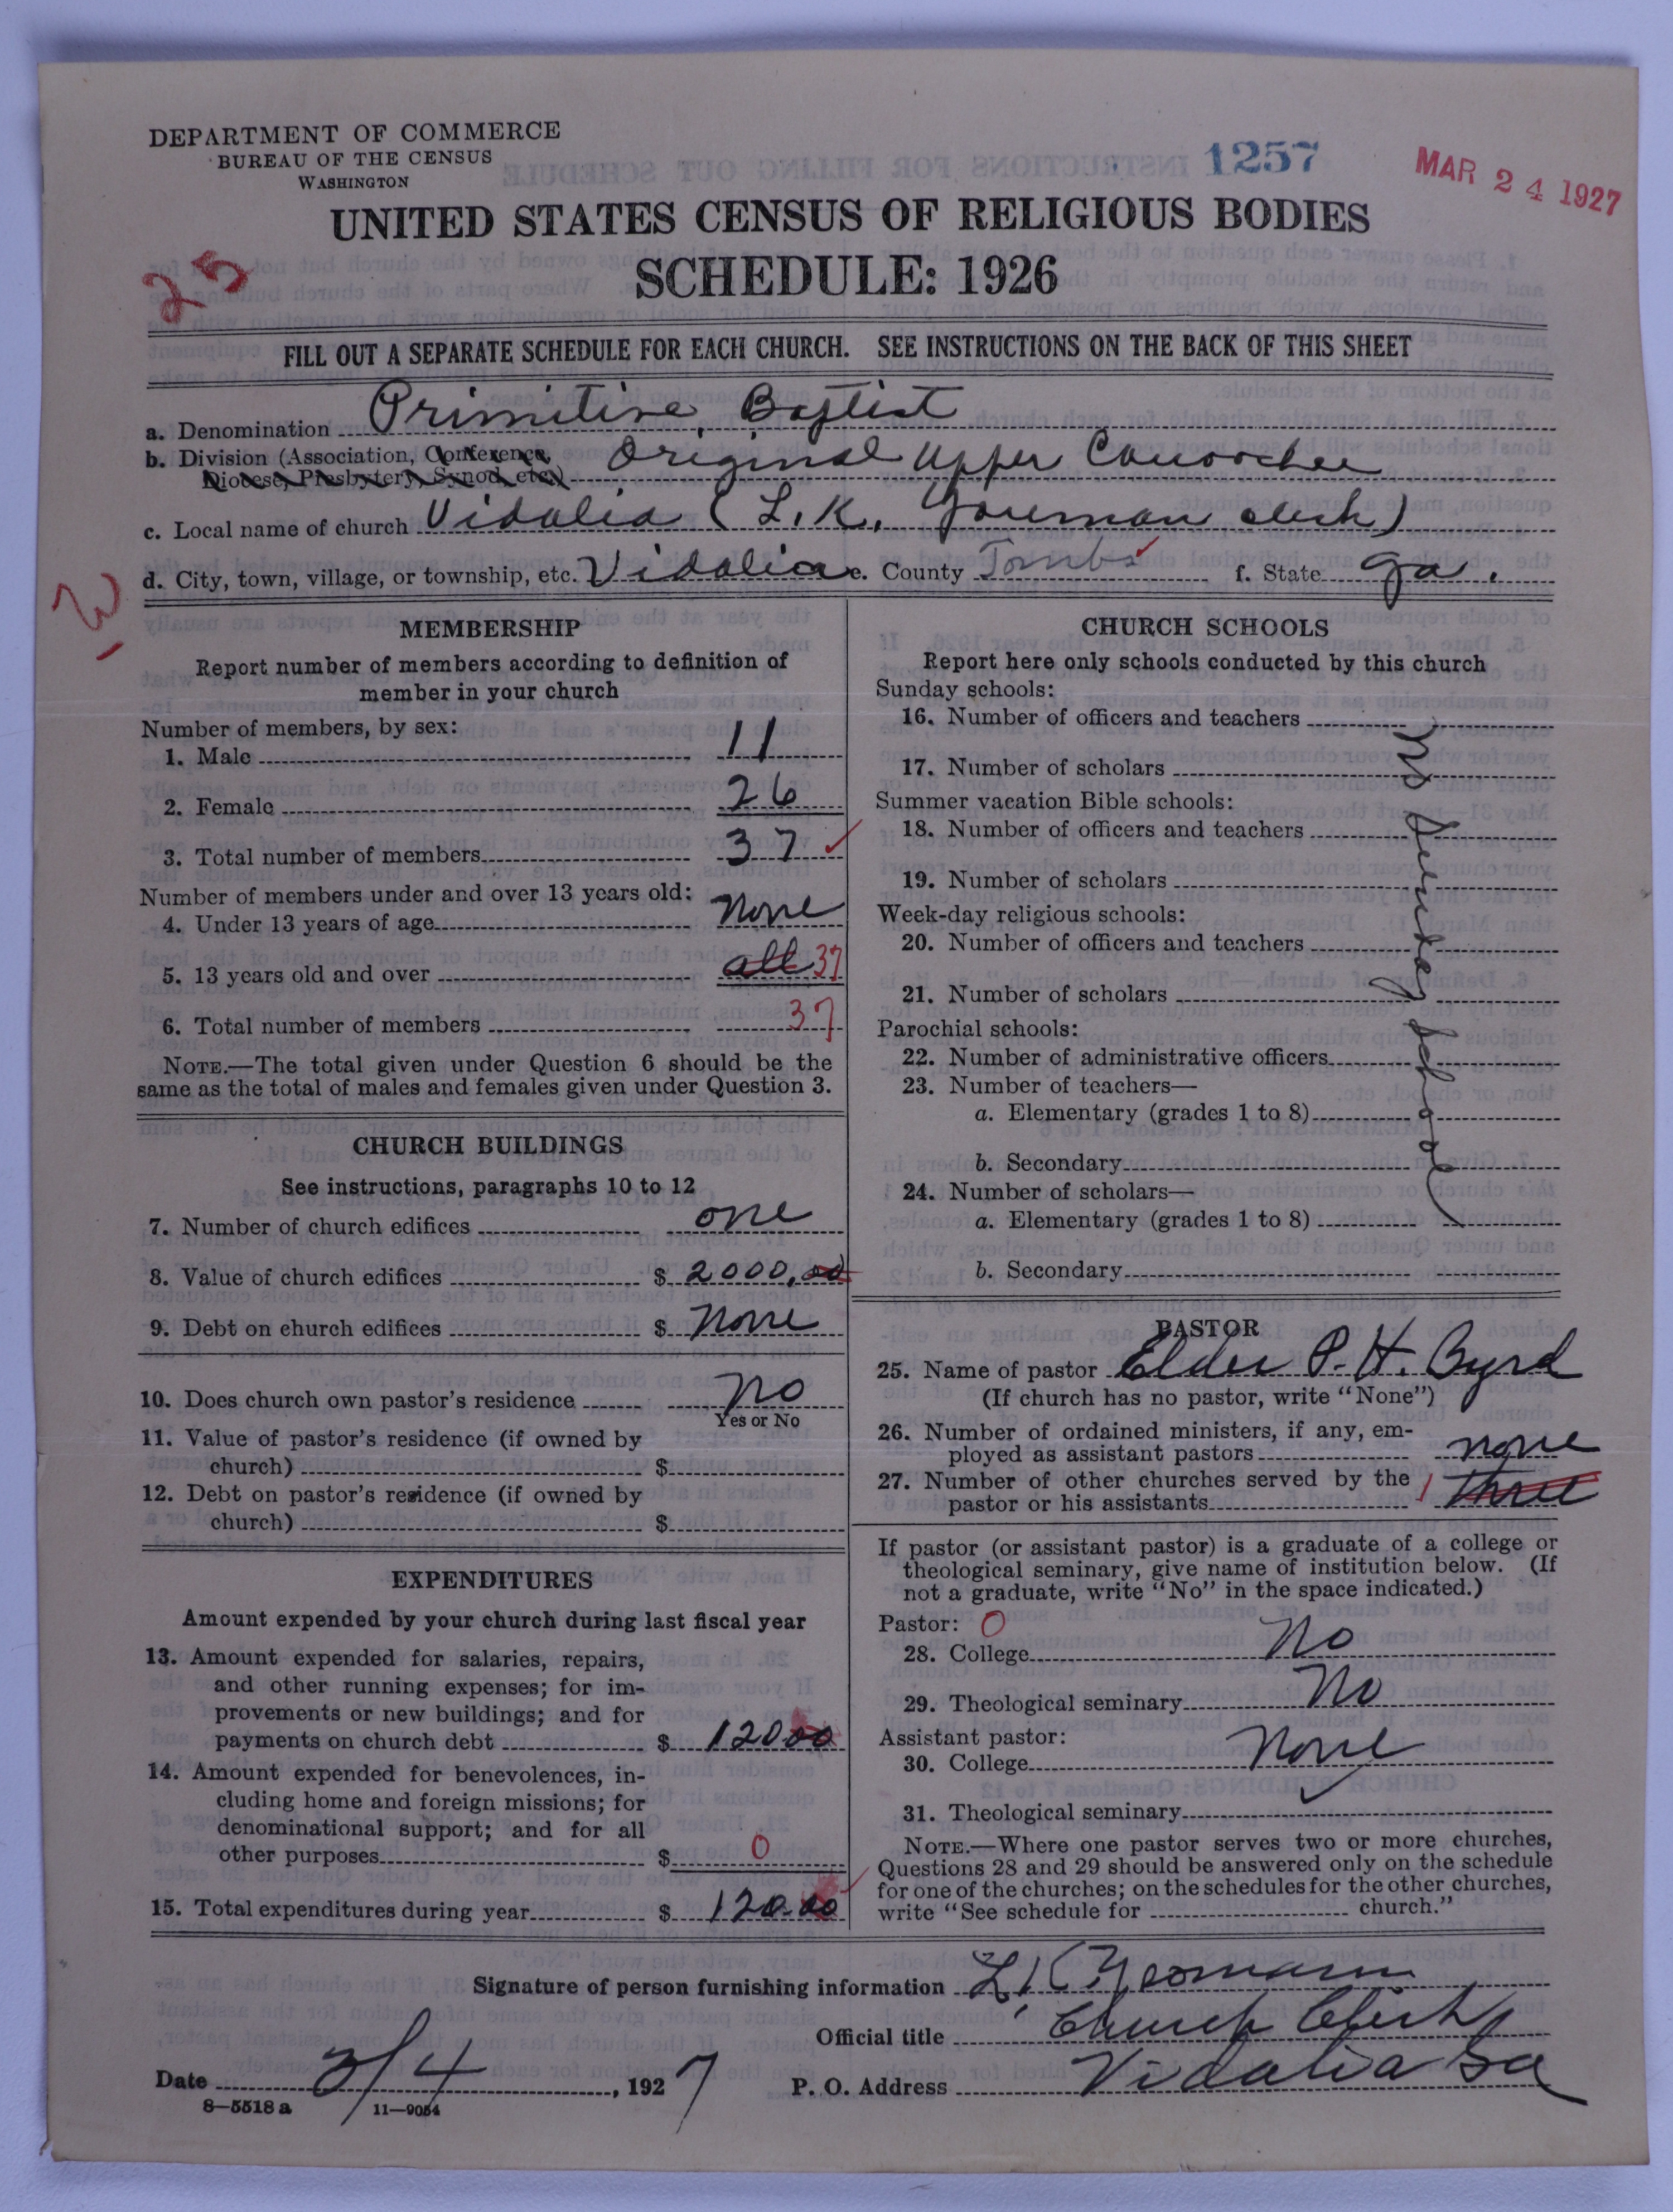 DEPARTMENT OF COMMERCE
BUREAU OF THE CENSUS
WASHINGTON
1257
MAR 24 1927
UNITED STATES CENSUS OF RELIGIOUS BODIES
SCHEDULE: 1926
25
FILL OUT A SEPARATE SCHEDULE FOR EACH CHURCH. SEE INSTRUCTIONS ON THE BACK OF THIS SHEET
a. Denomination Primitive Baptist
b. Division (Association, Conference, Original Upper Canoochee
Diocese, Presbytery, Synod, etc.)
c. Local name of church Vidalia (L. K. Youman clerk)
d. City, town, village, or township, etc. Vidalia e. County Tombs f. State Ga.
MEMBERSHIP
Report number of members according to definition of
member in your church
Number of members, by sex:
1. Male 11
2. Female 26
3. Total number of members 37
Number of members under and over 13 years old:
4. Under 13 years of age None
5. 13 years old and over all 37
6. Total number of members 37
NOTE.—The total given under Question 6 should be the
same as the total of males and females given under Question 3.
CHURCH BUILDINGS
See instructions, paragraphs 10 to 12
7. Number of church edifices one
8. Value of church edifices $ 2000,00
9. Debt on church edifices $ None
10. Does church own pastor's residence No
Yes or No
11. Value of pastor's residence (if owned by
church) $
12. Debt on pastor's residence (if owned by
church) $
EXPENDITURES
Amount expended by your church during last fiscal year
13. Amount expended for salaries, repairs,
and other running expenses; for im-
provements or new buildings; and for
payments on church debt $ 120 00
14. Amount expended for benevolences, in-
cluding home and foreign missions; for
denominational support; and for all
other purposes $ 0
15. Total expenditures during year $ 120.00
CHURCH SCHOOLS
Report here only schools conducted by this church
Sunday schools:
16. Number of officers and teachers
17. Number of scholars
Summer vacation Bible schools:
18. Number of officers and teachers
19. Number of scholars
Week-day religious schools:
20. Number of officers and teachers
21. Number of scholars
Parochial schools:
22. Number of administrative officers
23. Number of teachers—
a. Elementary (grades 1 to 8)
b. Secondary
24. Number of scholars—
a. Elementary (grades 1 to 8)
b. Secondary
No Sunday School
PASTOR
25. Name of pastor Elder P. H. Byrd
(If church has no pastor, write "None")
26. Number of ordained ministers, if any, em-
ployed as assistant pastors none
27. Number of other churches served by the
pastor or his assistants 1 three
If pastor (or assistant pastor) is a graduate of a college or
theological seminary, give name of institution below. (If
not a graduate, write "No" in the space indicated.)
Pastor: 0
28. College No
29. Theological seminary No
Assistant pastor:
30. College None
31. Theological seminary
NOTE.—Where one pastor serves two or more churches,
Questions 28 and 29 should be answered only on the schedule
for one of the churches; on the schedules for the other churches,
write "See schedule for church."
Signature of person furnishing information L. K. Yeomann
Official title Church Clerk
Date 3/4, 1927 P. O. Address Vidalia Ga
8—5518 a 11—9054